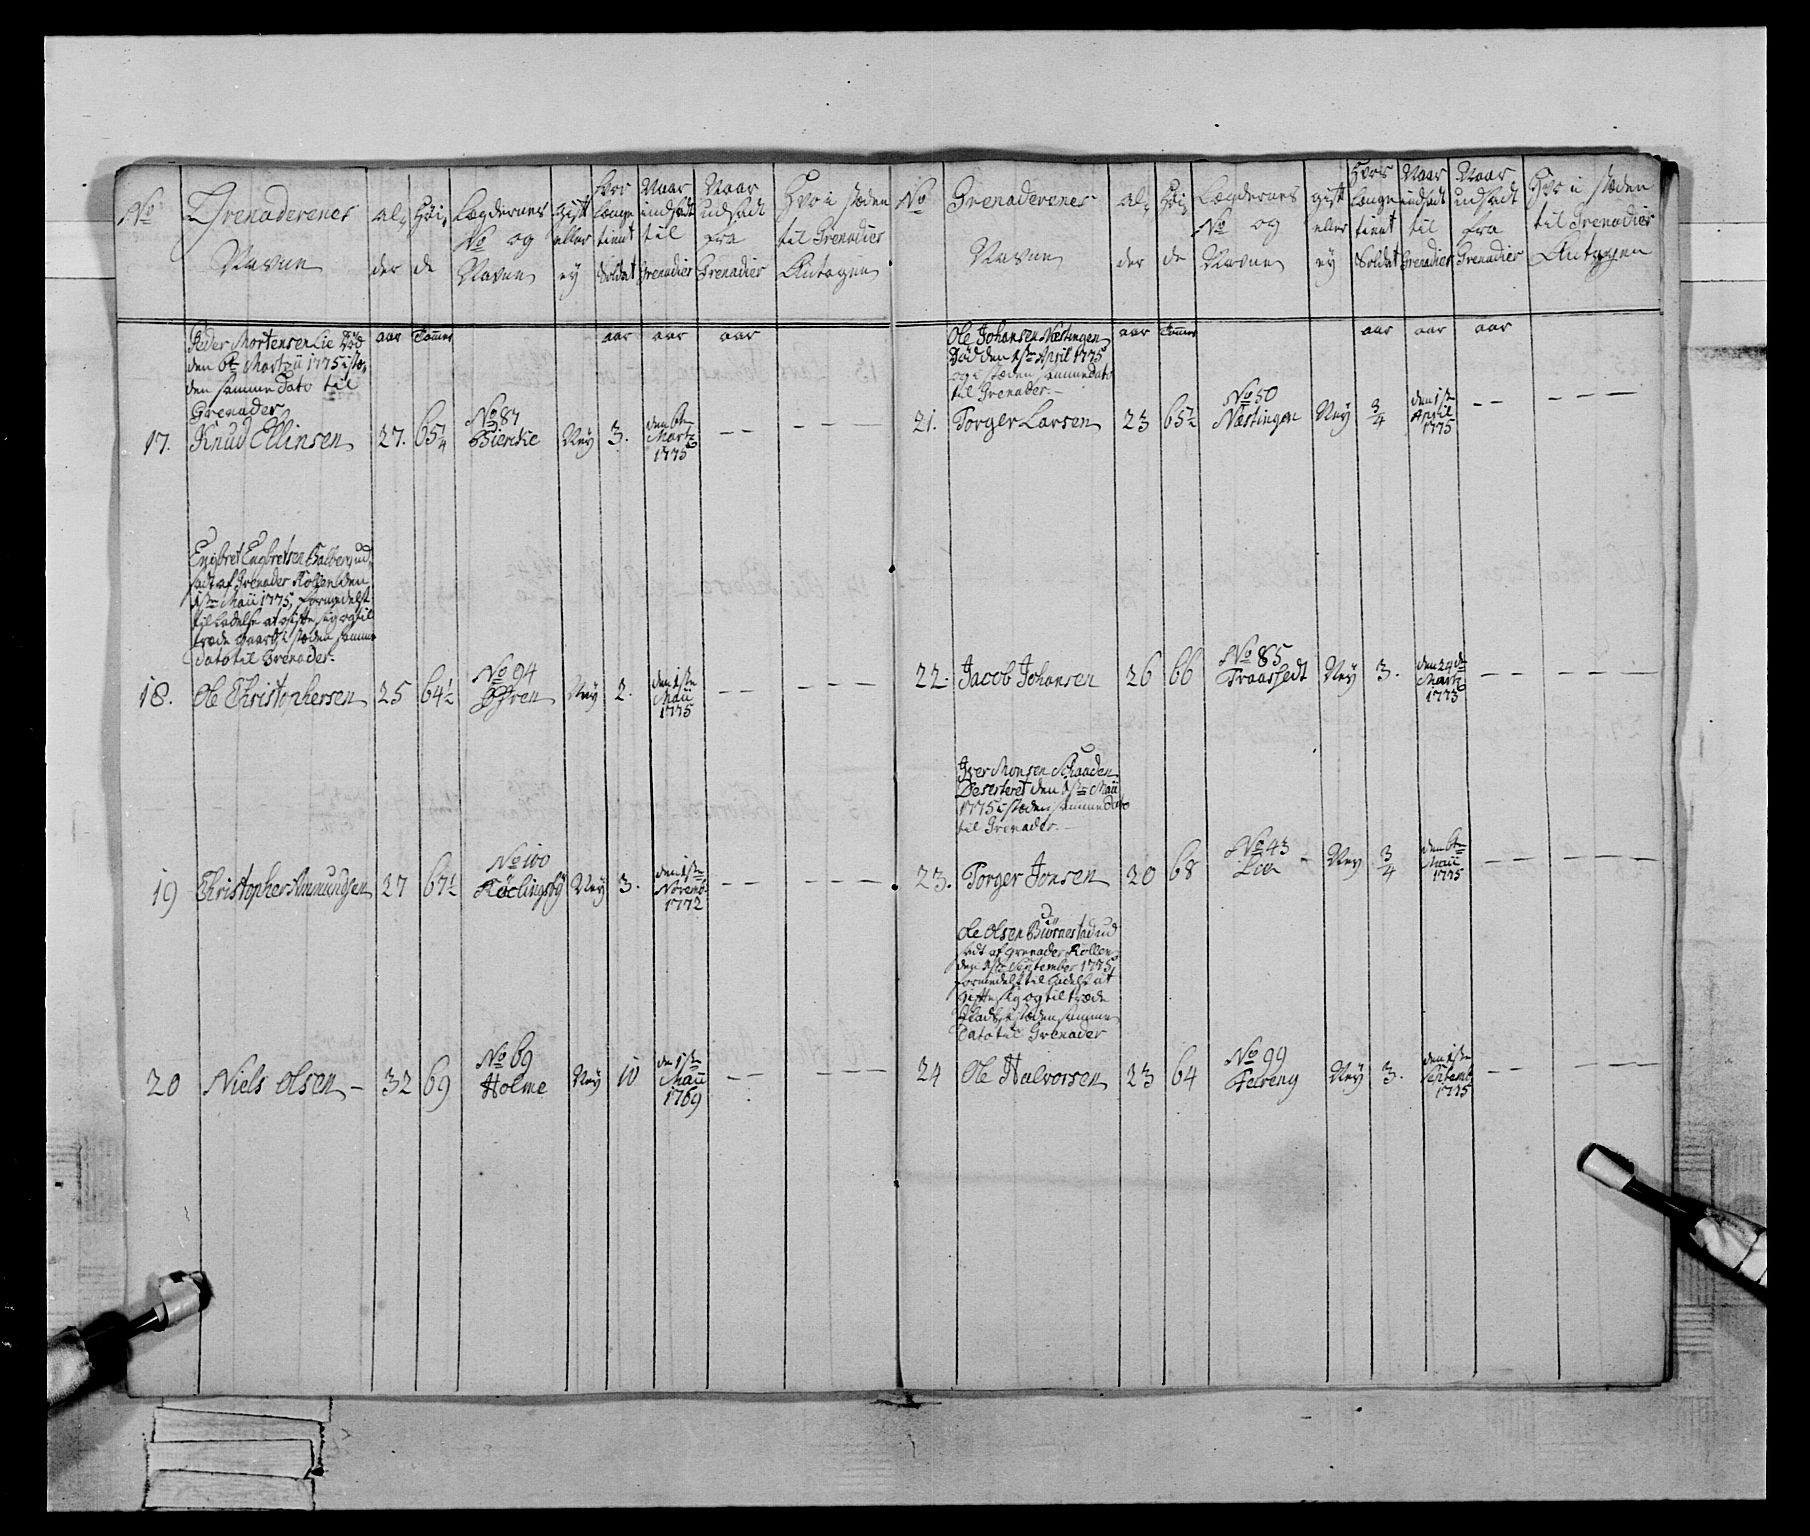 No
Grenaderenes
Navne
al,
der
Høi,
de
Lægdernes
No og
Navne
gift
eller
ey
hvor
længe
tient
Soldat
Naar
indsadt
til
Grenadier
Naar
udsadt
fra
Grenadier
Hvo i stæden
til Grenadier
Antagen
aar Tommer aar aar aar
Peder Mortensen Lie Død
den 6te Martzii 1775 i stæ,
den samme Dato til
Grenader
17. Knud Ellinsen 27. 65 1/4 No 87 Ney 3. den 6te
Martz
1775 — — — — —
Engbret Engbretsen ud,
sadt af Grenader Rollen den
1ste Maii 1775, formedelst
tilladelse at gifte sig og til
træde gaard, i stæden samme
dato til Grenader.
18. Ole Christophersen 25 64 1/2 No 94
Øfren Ney 2. den 1ste
Maii
1775 — — — — —
19 Christopher Amundsen 27 67 1/2 No 100
Köclingsby Ney 3. den 1ste
Novemb
1772 — — — — —
20 Niels Olsen — 32 69 No 69
Holme Ney 10 den 1ste
Maii
1769 — — — — —
No
Grenaderenes
Navne
al,
der
Høi,
de
Lægdernes
No og
Navne
gift
eller
ey
Hvor
længe
tient
Soldat
Naar
indsadt
til
Grenadier
Naar
udsadt
fra
Grenadier
Hvo i stæden
til Grenadier
Antagen
aar Tommer aar aar aar
Ole Johansen Næstingen
Død den 1ste April 1775
og i stæden samme dato
til Grenader. —
21. Torger Larsen 23 65 1/2 No 50
Næstingen Ney 3/4 den 1ste
April
1775 — — — — —
22. Jacob Johansen 26 66 No 85
Fraastedt Ney 3. den 24de
Martz
1773 — — — — —
Iver Monsen Skaaden
Deserteret den 1ste Maii
1775 i stæden samme dato
til Grenader. —
23. Torger Jonsen 20 68 No 43
Lien Ney 3/4 den 6te
Maii
1775 — — — — —
Ole Olsen Biörnestad ud
sadt af grenader Rollen
den 1ste September 1775,
formedelst tilladelse at
gifte sig og til træde
Plads, i stæden samme
Dato til Grenader
24 Ole Halvorsen 23 64 No 99
Ney 3. den 1ste
Septemb
1775 — — — — —